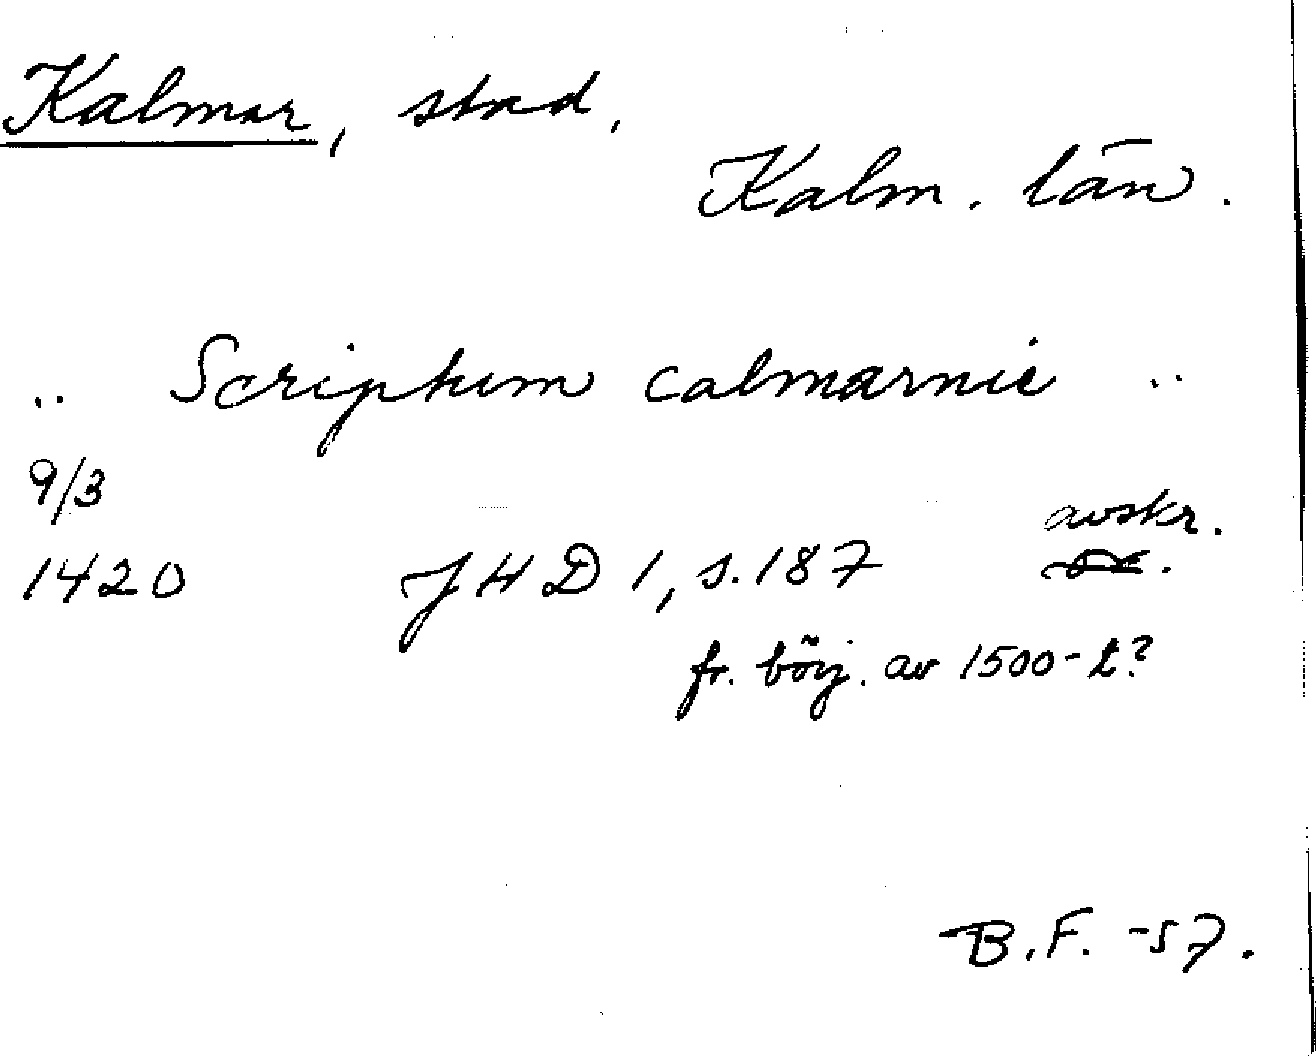 Kalmar, stad,
Kalm. län.
.. Scriptum calmarnie ..
9/3
1420 JHD 1, s. 187 avskr.
fr. börj. av 1500-t?
B.F. -57.